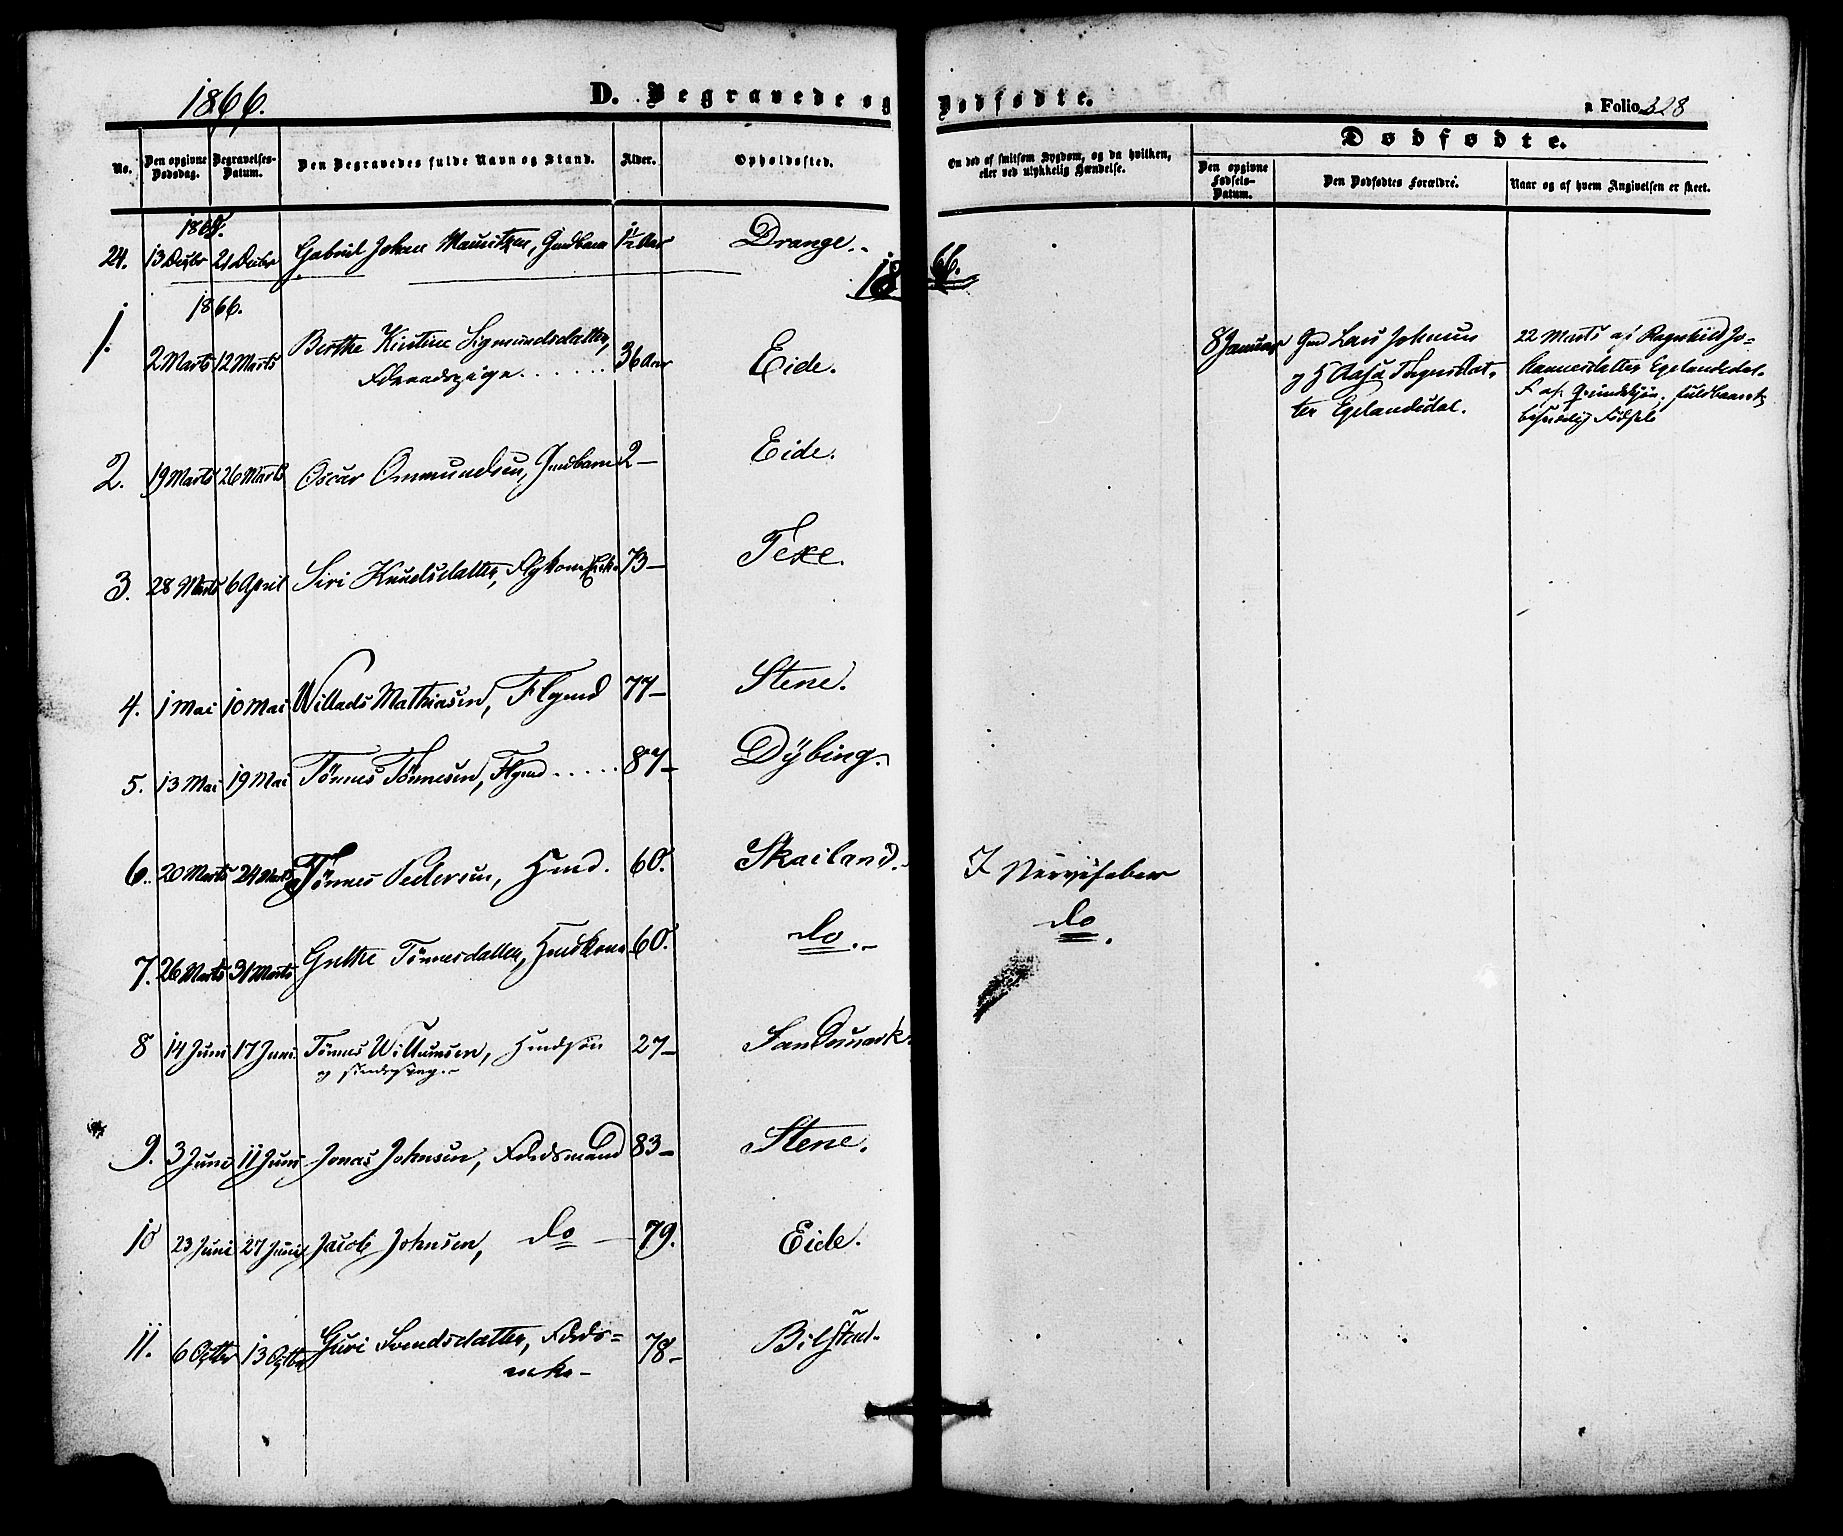 1866.
D. Begravede og Dødfødte.
a Folio 328
No.
Den opgivne Dødsdag.
Begravelses-Datum.
Den Begravedes fulde Navn og Stand.
Alder.
Opholdssted.
Om død af smitsom Sygdom, og da hvilken, eller ved ulykkelig Hændelse.
Dødfødte.
Den opgivne Fødsels-Datum.
Den Dødfødtes Forældre.
Naar og af hvem Angivelsen er skeet.
1865.
24. 13 Decbr 21 Decbr Gabriel Johan Mauritzen, Gmdbarn 1½ Aar Drange.
1866.
1866.
1. 2 Marts 12 Marts Berthe Kirstine Sigmundsdatter, 36 Aar Eide.
8 Januar Gmd Lars Johnsen
og H Aasa Tagesdat-
ter Egelandsdal.
22 Marts af Ragnhild Jo-
hannesdatter Egelandsdal.
2. 19 Marts 26 Marts Oscar Ommundsen, Gmdbarn 2— Eide.
3. 28 Marts 6 April Siri Knudsdatter, 73— Fexe.
4. 1 Mai 10 Mai Willads Mathiasen, Flgmd 77— Stene.
5. 13 Mai 19 Mai Tönnes Tönnesen, Flgmd ..... 87— Dÿbing.
6. 20 Marts 24 Marts Tönnes Pedersen, Hmd. 60. Skailand. Nervefeber
7. 26 Marts 31 Marts Grethe Tönnesdatter, Hmdkone 60. do. do.
8 14 Juni 17 Juni Tönnes Willumsen, Hmdsön 27— Sandsmark.
og sindssvag.
9. 3 Juni 11 Juni Jonas Johnsen, Fdrdsmand 83— Stene.
10 23 Juni 27 Juni Jacob Johnsen, do — 79. Eide.
11. 6 Octbr 13 Octbr Guri Svendsdatter, Fdrds= 78— Bilstad.
enke—